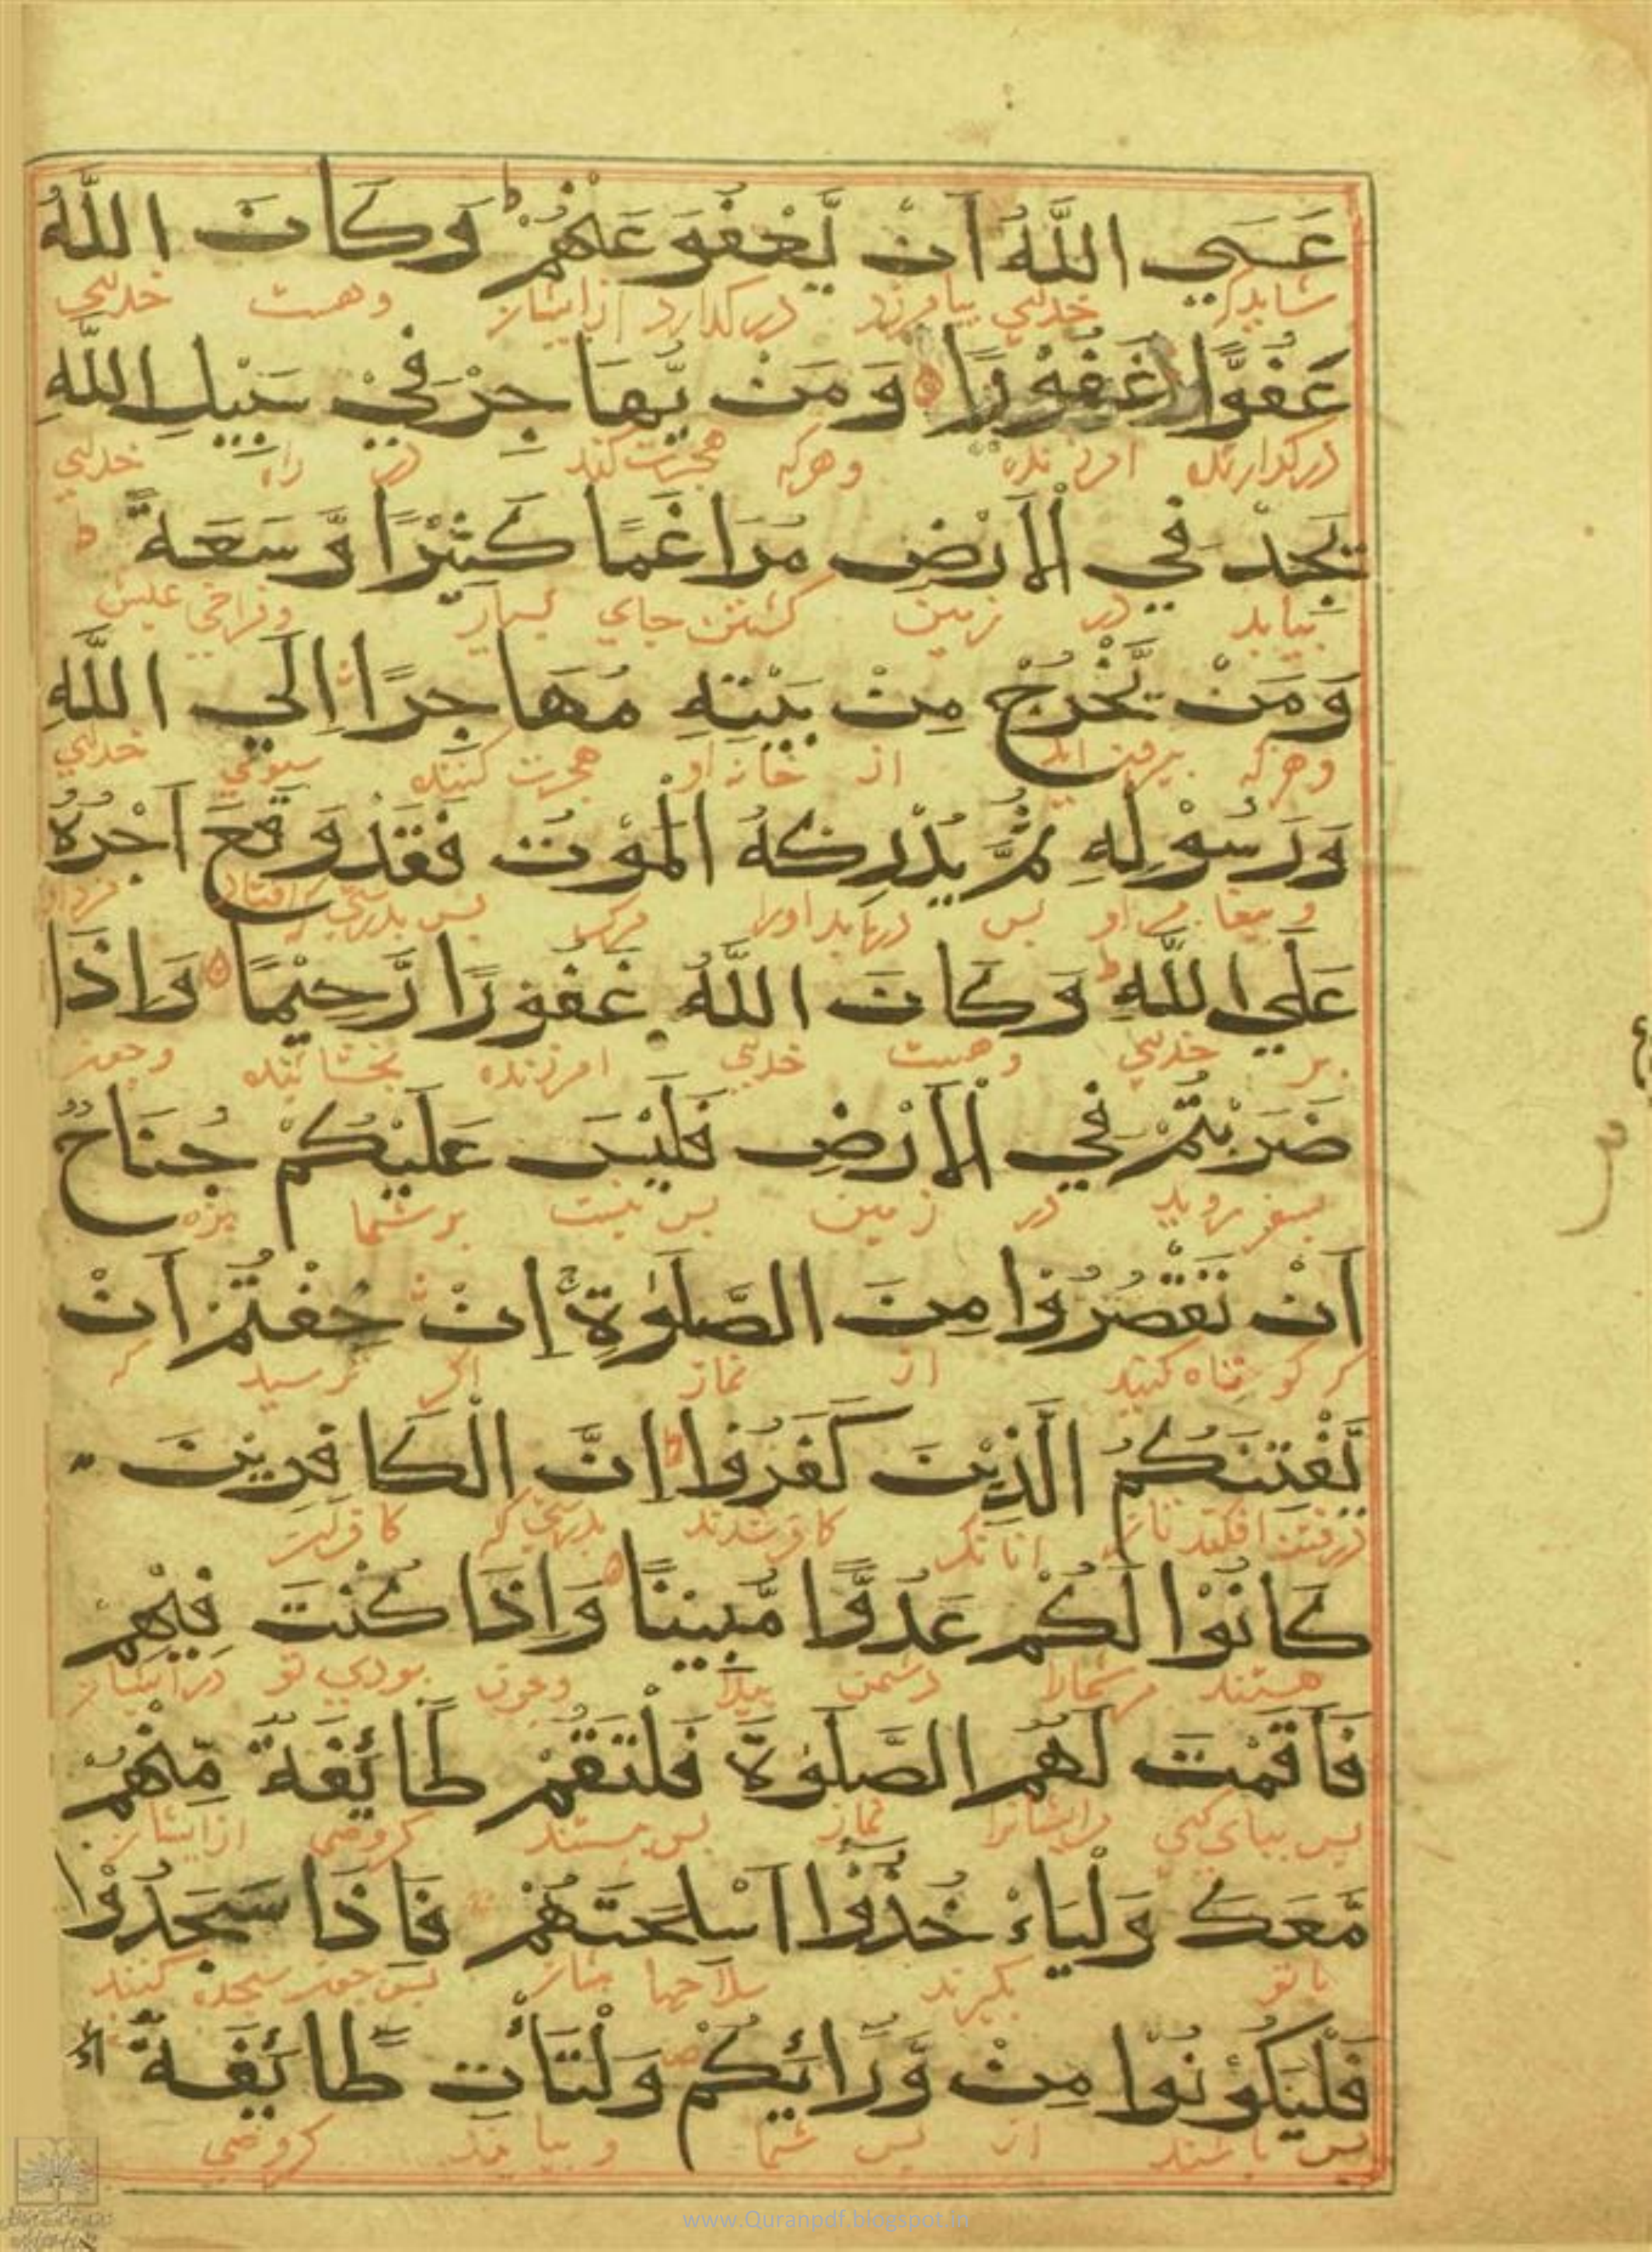 عَسَي اللَّهُ اَنْ يَّعْفُوَ عَنْهُمْ ط وَكَانَ اللَّهُ
شاید که خدای بیامرزد درگذارد ازایشان وهست خدای
عَفُوًّا غَفُوْرًا وَمَنْ يُّهَاجِرْ فِيْ سَبِيْلِ اللَّهِ
درگذارنده امرزنده وهرکه هجرت کند در راه خدای
يَجِدْ فِي الْاَرْضِ مُرَاغَمًا كَثِيْرًا وَّسَعَةً ط
بیابد در زمین کشتن جای بسیار وفراخی عیش
وَمَنْ يَّخْرُجْ مِنْ بَيْتِهِ مُهَاجِرًا اِلَي اللَّهِ
وهرکه بیرون اید از خانه او هجرت کننده سوی خدای
وَرَسُوْلِهِ ثُمَّ يُدْرِكْهُ الْمَوْتُ فَقَدْ وَقَعَ اَجْرُهُ
و پیغامبر او پس دریابد اورا مرک پس بدرستی که افتاد مزد او
عَلَي اللَّهِ ط وَكَانَ اللَّهُ غَفُوْرًا رَّحِيْمًا وَاِذَا
بر خدای وهست خدای امرزنده بخشاینده وچون
ضَرَبْتُمْ فِي الْاَرْضِ فَلَيْسَ عَلَيْكُمْ جُنَاحٌ
بسفر روید در زمین پس نیست بر شما بزه
اَنْ تَقْصُرُوْا مِنَ الصَّلٰوةِ اِنْ خِفْتُمْ اَنْ
کر کوتاه کنید از نماز اکر ترسید که
يَّفْتِنَكُمُ الَّذِيْنَ كَفَرُوا ط اِنَّ الْكَافِرِيْنَ
درفتنه افکند انانک کافر شدند بدرستی که کافران
كَانُوْا لَكُمْ عَدُوًّا مُّبِيْنًا وَاِذَا كُنْتَ فِيْهِمْ
هستند مر شمارا دشمن پیدا وچون بودی تو درایشان
فَاَقَمْتَ لَهُمُ الصَّلٰوةَ فَلْتَقُمْ طَائِفَةٌ مِّنْهُمْ
پس بپای کنی مرایشانرا نماز پس بیستند کروهی ازایشان
مَّعَكَ وَلْيَاْخُذُوْا اَسْلِحَتَهُمْ فَاِذَا سَجَدُوْا
با تو بکیرند سلاحها پس چون سجده کنند
فَلْيَكُوْنُوْا مِنْ وَّرَائِكُمْ وَلْتَأْتِ طَائِفَةٌ
پس باشند از پس شما و بیایند کروهی
www.Quranpdf.blogspot.in